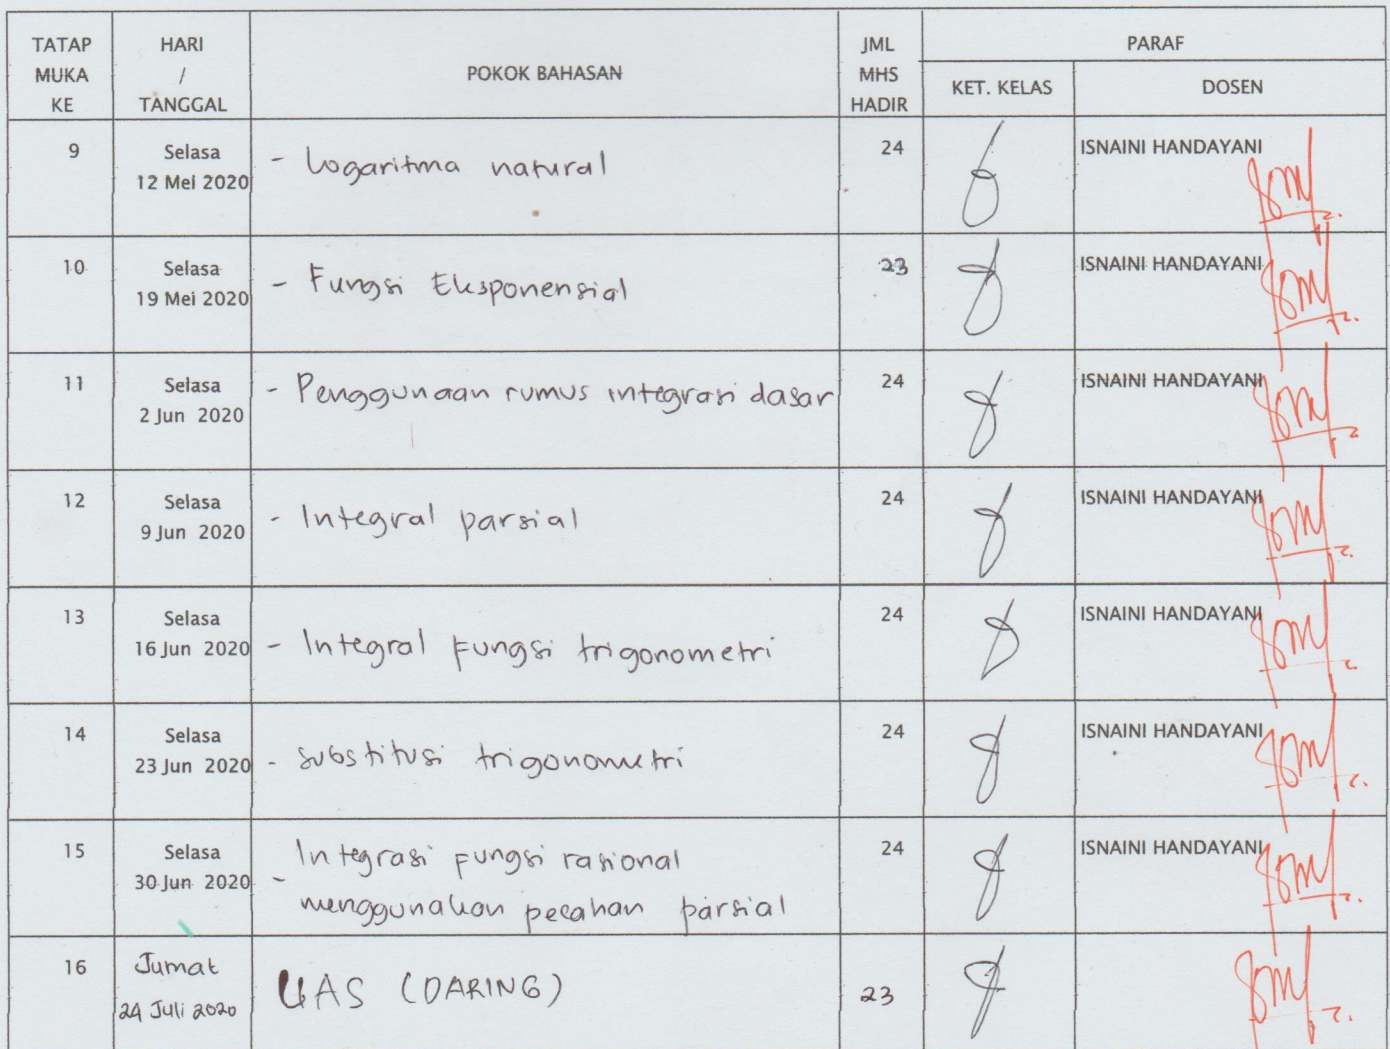 TATAP MUKA KE
HARI / TANGGAL
POKOK BAHASAN
JML MHS HADIR
PARAF
KET. KELAS
DOSEN
9
Selasa
12 Mei 2020
- Logaritma natural
24
ISNAINI HANDAYANI
10
Selasa
19 Mei 2020
- Fungsi Eksponensial
23
ISNAINI HANDAYANI
11
Selasa
2 Jun 2020
- Penggunaan rumus integrasi dasar
24
ISNAINI HANDAYANI
12
Selasa
9 Jun 2020
- Integral parsial
24
ISNAINI HANDAYANI
13
Selasa
16 Jun 2020
- Integral fungsi trigonometri
24
ISNAINI HANDAYANI
14
Selasa
23 Jun 2020
- substitusi trigonometri
24
ISNAINI HANDAYANI
15
Selasa
30 Jun 2020
- Integrasi fungsi rasional
menggunakan pecahan parsial
24
ISNAINI HANDAYANI
16
Jumat
24 Juli 2020
UAS (DARING)
23